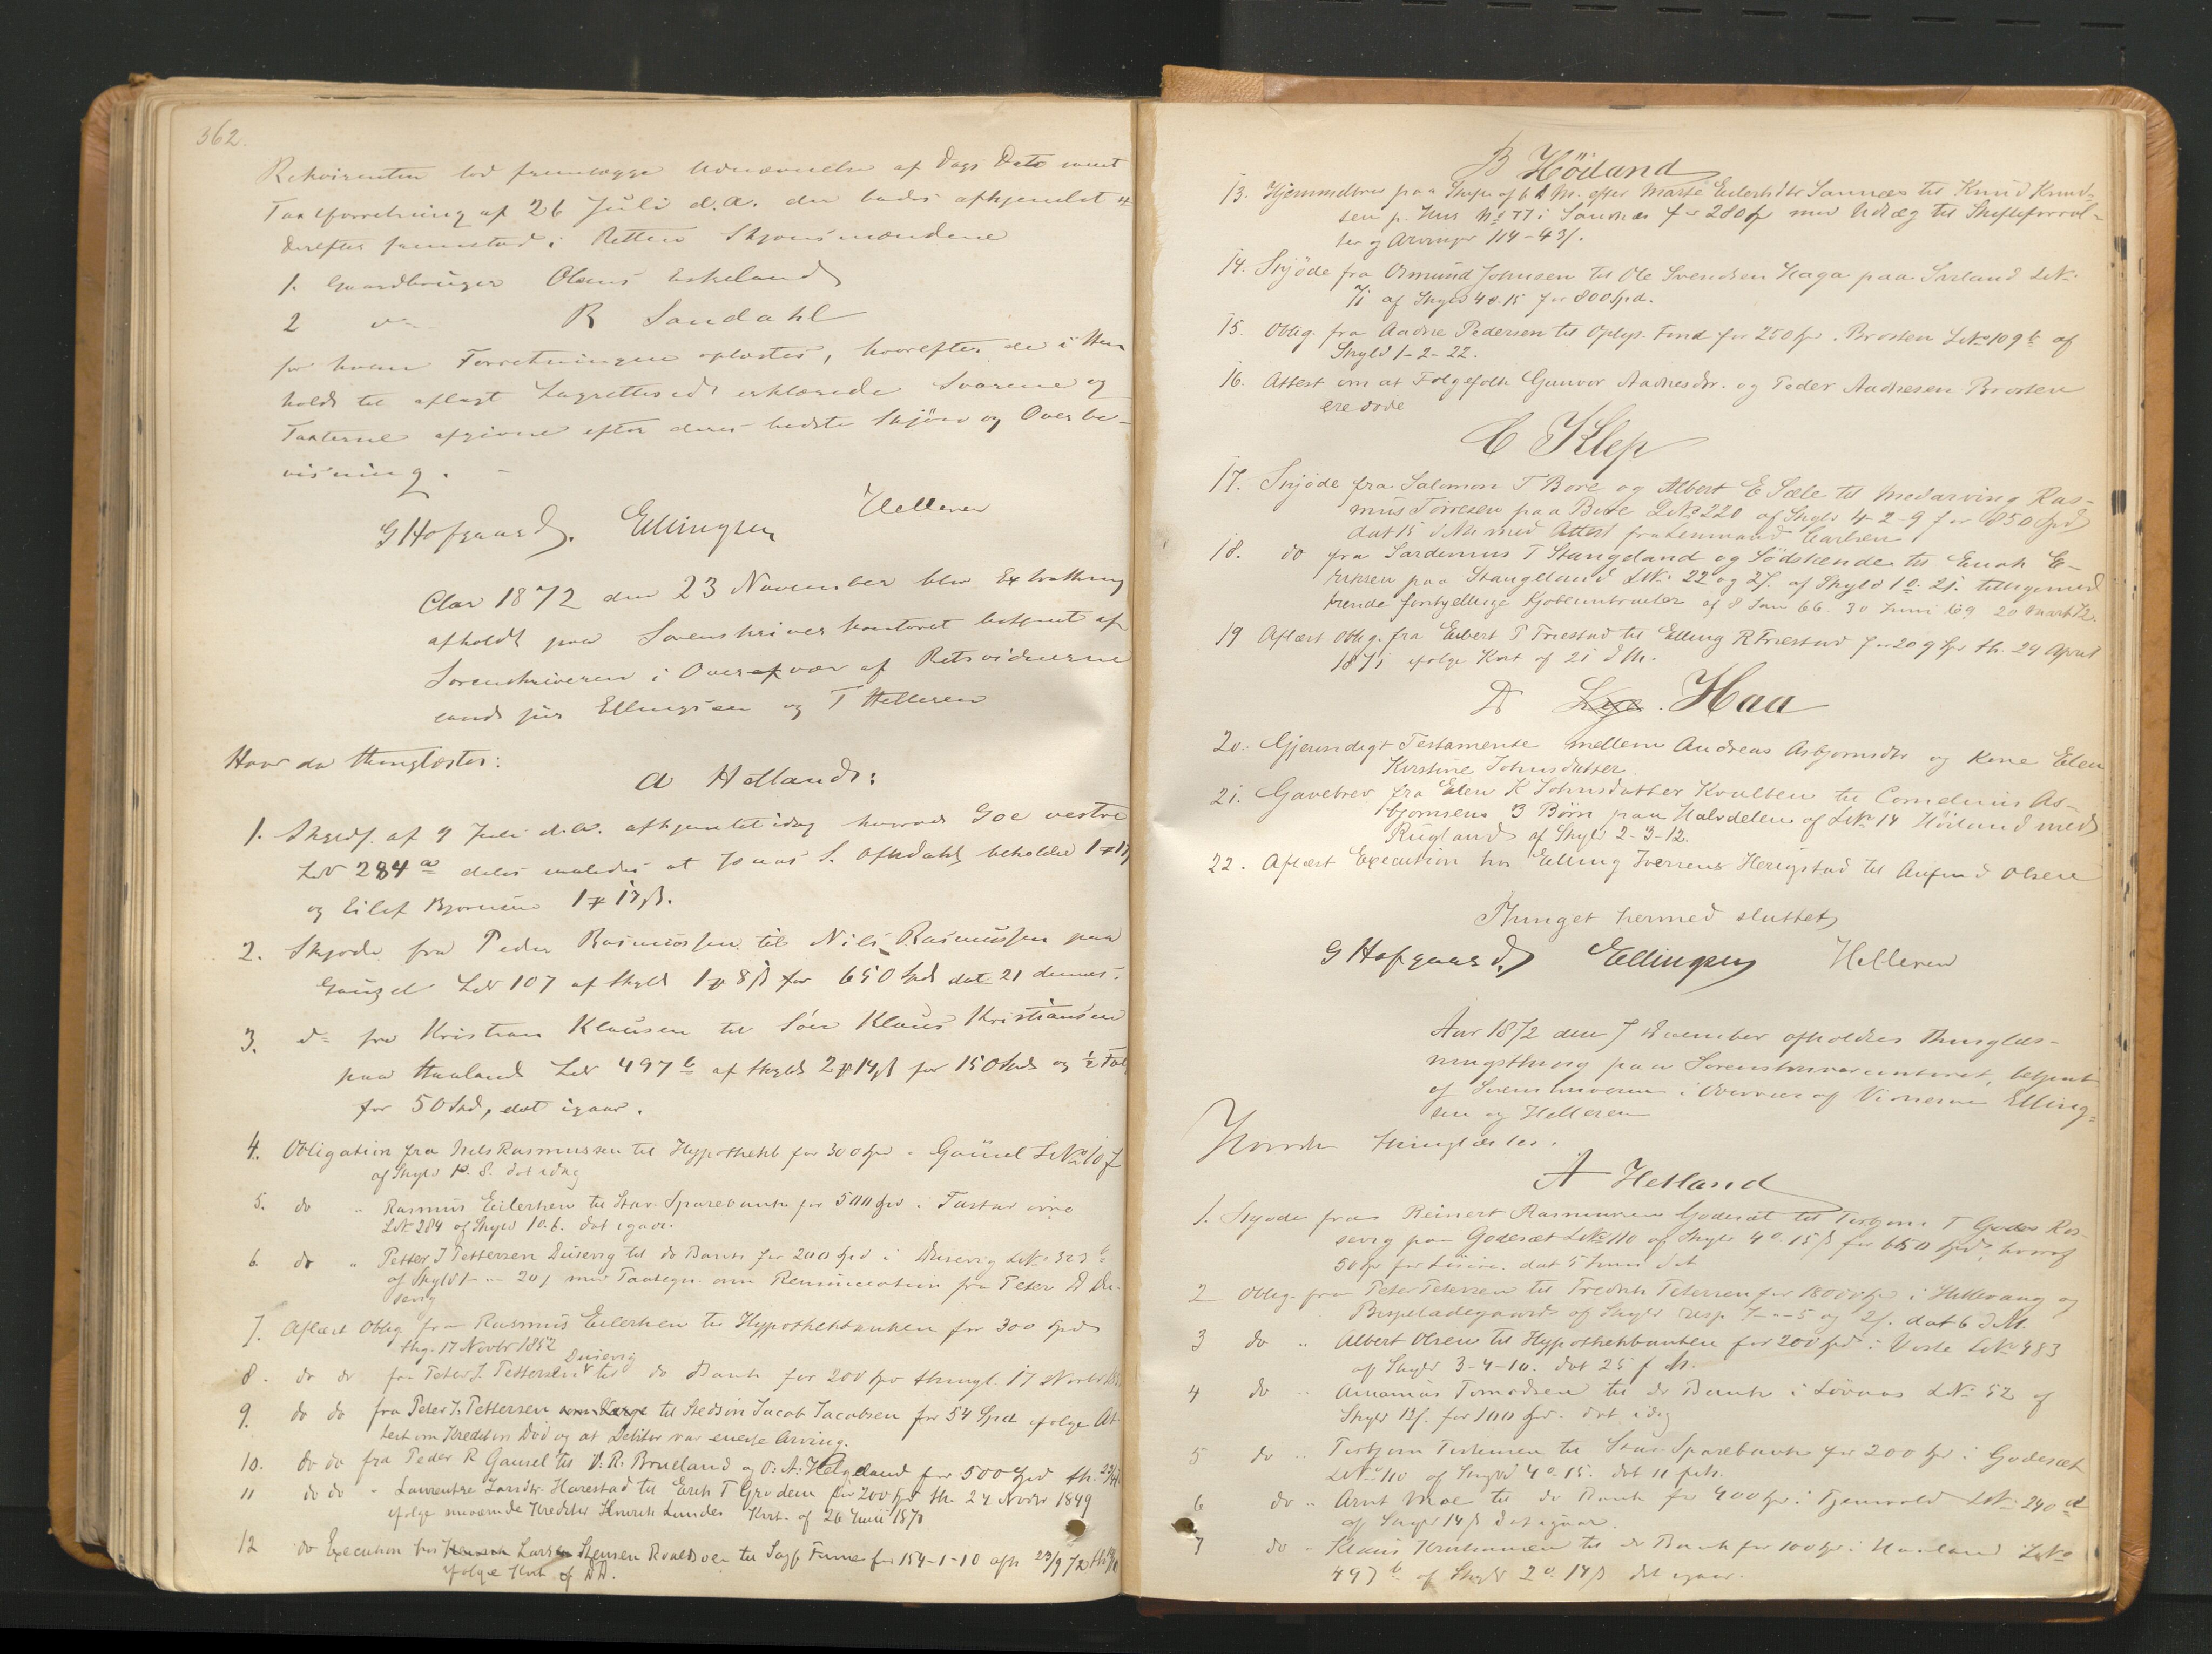 362.
Rekvirenten lod fremlægge Udnævnelse af Dags Dato samt
Taxtforretning af 26 Juli d.A. der bades afhjemlet
Derefter fremstod i Retten Skjønsmændene
1. Gaardbruger Olaus Eskeland
2 do R Sandahl
for hvem Forretningen oplæstes, hvorefter de i Hen
hold til aflagt Lagrettesed erklærede Svarene og
Taxterne afgivne efter deres bedste Skjøn og Overbe-
visning. -
G Hofgaard. Ellingsen Helleren
Aar 1872 den 23 November blev Extrathing
afholdt paa Sorenskriverkontoret betjent af
Sorenskriveren i Overvær af Retsvidnerne
cand jur Ellingsen og T Helleren
Hvor da thinglæstes:
A Hetland:
1. Skyldf. af 9 Juli d.A. afhjemlet idag hvorved Goe vestre
LNr 284 a deles saaledes at Jonas S. beholder 1
og Eilef Bjørnsen 1 17 ß.
2. Skjøde fra Peder Rasmussen til Nils Rasmussen paa
Gausel LNr 107 af Skyld 1 8 ß for 650 Spd dat 21 dennes.
3. do fra Kristian Klausen til Søn Klaus Kristiansen
paa Haaland LNr 497 b af Skyld 2 14 ß for 150 Spd og
for 50 Spd, dat igaar.
4. Obligation fra Nils Rasmussen til Hypothekb for 300 Spd i Gausel LNo 107
af Skyld 10. 8. dat idag
5. do " Rasmus Eilertsen til Stav. Sparebank for 500 Spd i Tastad
LNr 284 af Skyld 10. 6. dat igaar.
6. do " Petter J Pettersen Dusevig til do Bank for 200 Spd i Dusevig LNo 323 b
af Skyld 1 - - 20 ß med Paategn. om Renunciation fra Peter Du-
sevig
7. Aflæst Oblig fra Rasmus Eilertsen til Hypothekbanken for 300 Spd
thg. 17 Novbr 1852
8. do do fra Peter J. Pettersen Dusevig til do Bank for 200 Spd thingl. 17 Novbr
9. do do fra Peter J. Pettersen til Stedsøn Jacob Jacobsen for 54 Spd ifølge At-
test om Kreditors Død og at Debitor var eneste Arving.
10. do do fra Peder R Gausel til O. R. Brueland og O. A. Helgeland for 500 Spd th.
11 do do " Laurentse Larsdtr. Harestad til Erich T Grødem for 200 Spd th. 24 Novbr 1849
ifølge nuværende Kreditor Henrik Lundes Kvit. af 26 Juni 1870
12 do Execution hos Larsen Stensen til Sagf Furne for 154-1-10 afh 23/9 72
ifølge Kvit. af DD.
B Höiland
13. Hjemmelbrev paa Skifte af 6 d M. efter Marthe Eilertsdtr Sannæs til Knud Knud-
sen p. Hus No 77 i Sandnæs for 280 Spd med Udlæg til Skifteforval-
ter og Arvinger 114-43 ß.
14. Skjöde fra Osmund Johnsen til Ole Svendsen Haga paa Sørland LNr.
71 af Skyld 4 o. 15 for 800 Spd.
15. Oblig. fra Aadne Pedersen til Oplys. Fond for 250 Spd. i Brosten LNo 109 b af
Skyld 1-2-22.
16. Attest om at Folgefolk Gunvor Aadnesdtr. og Peder Aadnesen Brosten
ere døde
C Klep
17. Skjøde fra Salomon T Bore og Albert E Sæle til Medarving Ras-
mus Tørresen paa Bore LNo 220 af Skyld 4-2-9 for 850 Spd
dat 15 d M. med Attest fra Lensmand Carlsen
18. do fra Sardemus T Stangeland og Södskende til Enok E-
riksen paa Stangeland LNr. 22 og 27. af Skyld 1 o. 21. tilligemed
trende forskjellige Kjøbekontrakter af 8 Jan 66. 30 Juni 69 20 Marts 72.
19 Aflæst Oblig. fra Eivert P Friestad til Elling R Friestad for 209 Spd th. 24 April
1871 ifølge Kvit af 21 d M.
D Lye. Haa
20. Gjensidigt Testamente mellem Andreas Asbjørnsdtr og Kone Elen
Kirstine Johnsdatter
21. Gavebrev fra Elen K Johnsdatter Kvalben til Cornelius As-
bjørnsens 3 Børn paa Halvdelen af LNo 14 Höiland med
Rugland af Skyld 2-3-12.
22. Aflæst Execution hos Elling Iversens Herigstad til Anfind Olsen
Thinget hermed sluttet
G Hofgaard. Ellingsen Helleren
Aar 1872 den 7 December afholdtes Thinglæs-
ningsthing paa Sorenskriverkontoret, betjent
af Sorenskriveren i Overvær af Vidnerne Elling-
sen og Helleren
Hvorda thinglæstes.
A Hetland
1. Skjøde fra Reinert Rasmussen Godesæt til Torbjørn T Godes
sevig paa Godesæt LNo 110 af Skyld 4 o. 15 ß for 650 Spd, hvoraf
50 Spd for Løsøre. dat 5 Juni
2 Oblig. fra Peter Petersen til Fredrik Petersen for 1800 Spd i Hillevaag og
Bispeladegaard af Skyld resp. 7--5 og 2 ß. dat 6 d M.
3 do " Albert Olsen til Hypothekbanken for 200 Spd i LNo 483
af Skyld 3-4-10. dat 25 f M.
4 do " Ananias Tomodsen til do Bank i Løvaas LNo. 52 af
Skyld 12 ß. for 100 Spd. dat idag
5 do " Torbjørn til Stav. Sparebank for 200 Spd i Godesæt
LNo 110 af Skyld 4 o. 15. dat 11
6 do " Arnt Moe til do Bank for 400 Spd i Tjensvold LNr. 240 d
af Skyld 14 ß dat igaar.
7 do " Klaus Kristiansen til do Bank for 100 Spd i Haaland LNo
497 b af Skyld 2 o. 14 ß dat igaar.